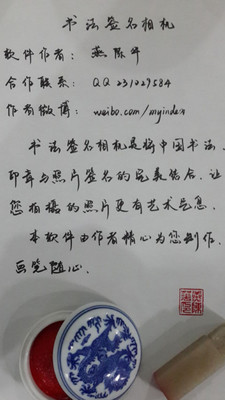 书法签名相机
软件作者：燕陈华
合作联系：QQ 231029584
作者微博：weibo.com/myindex
书法签名相机是将中国书法、
印章与照片签名的完美结合，让
您拍摄的照片更有艺术气息。
本软件由作者精心为您制作，
画览随心。